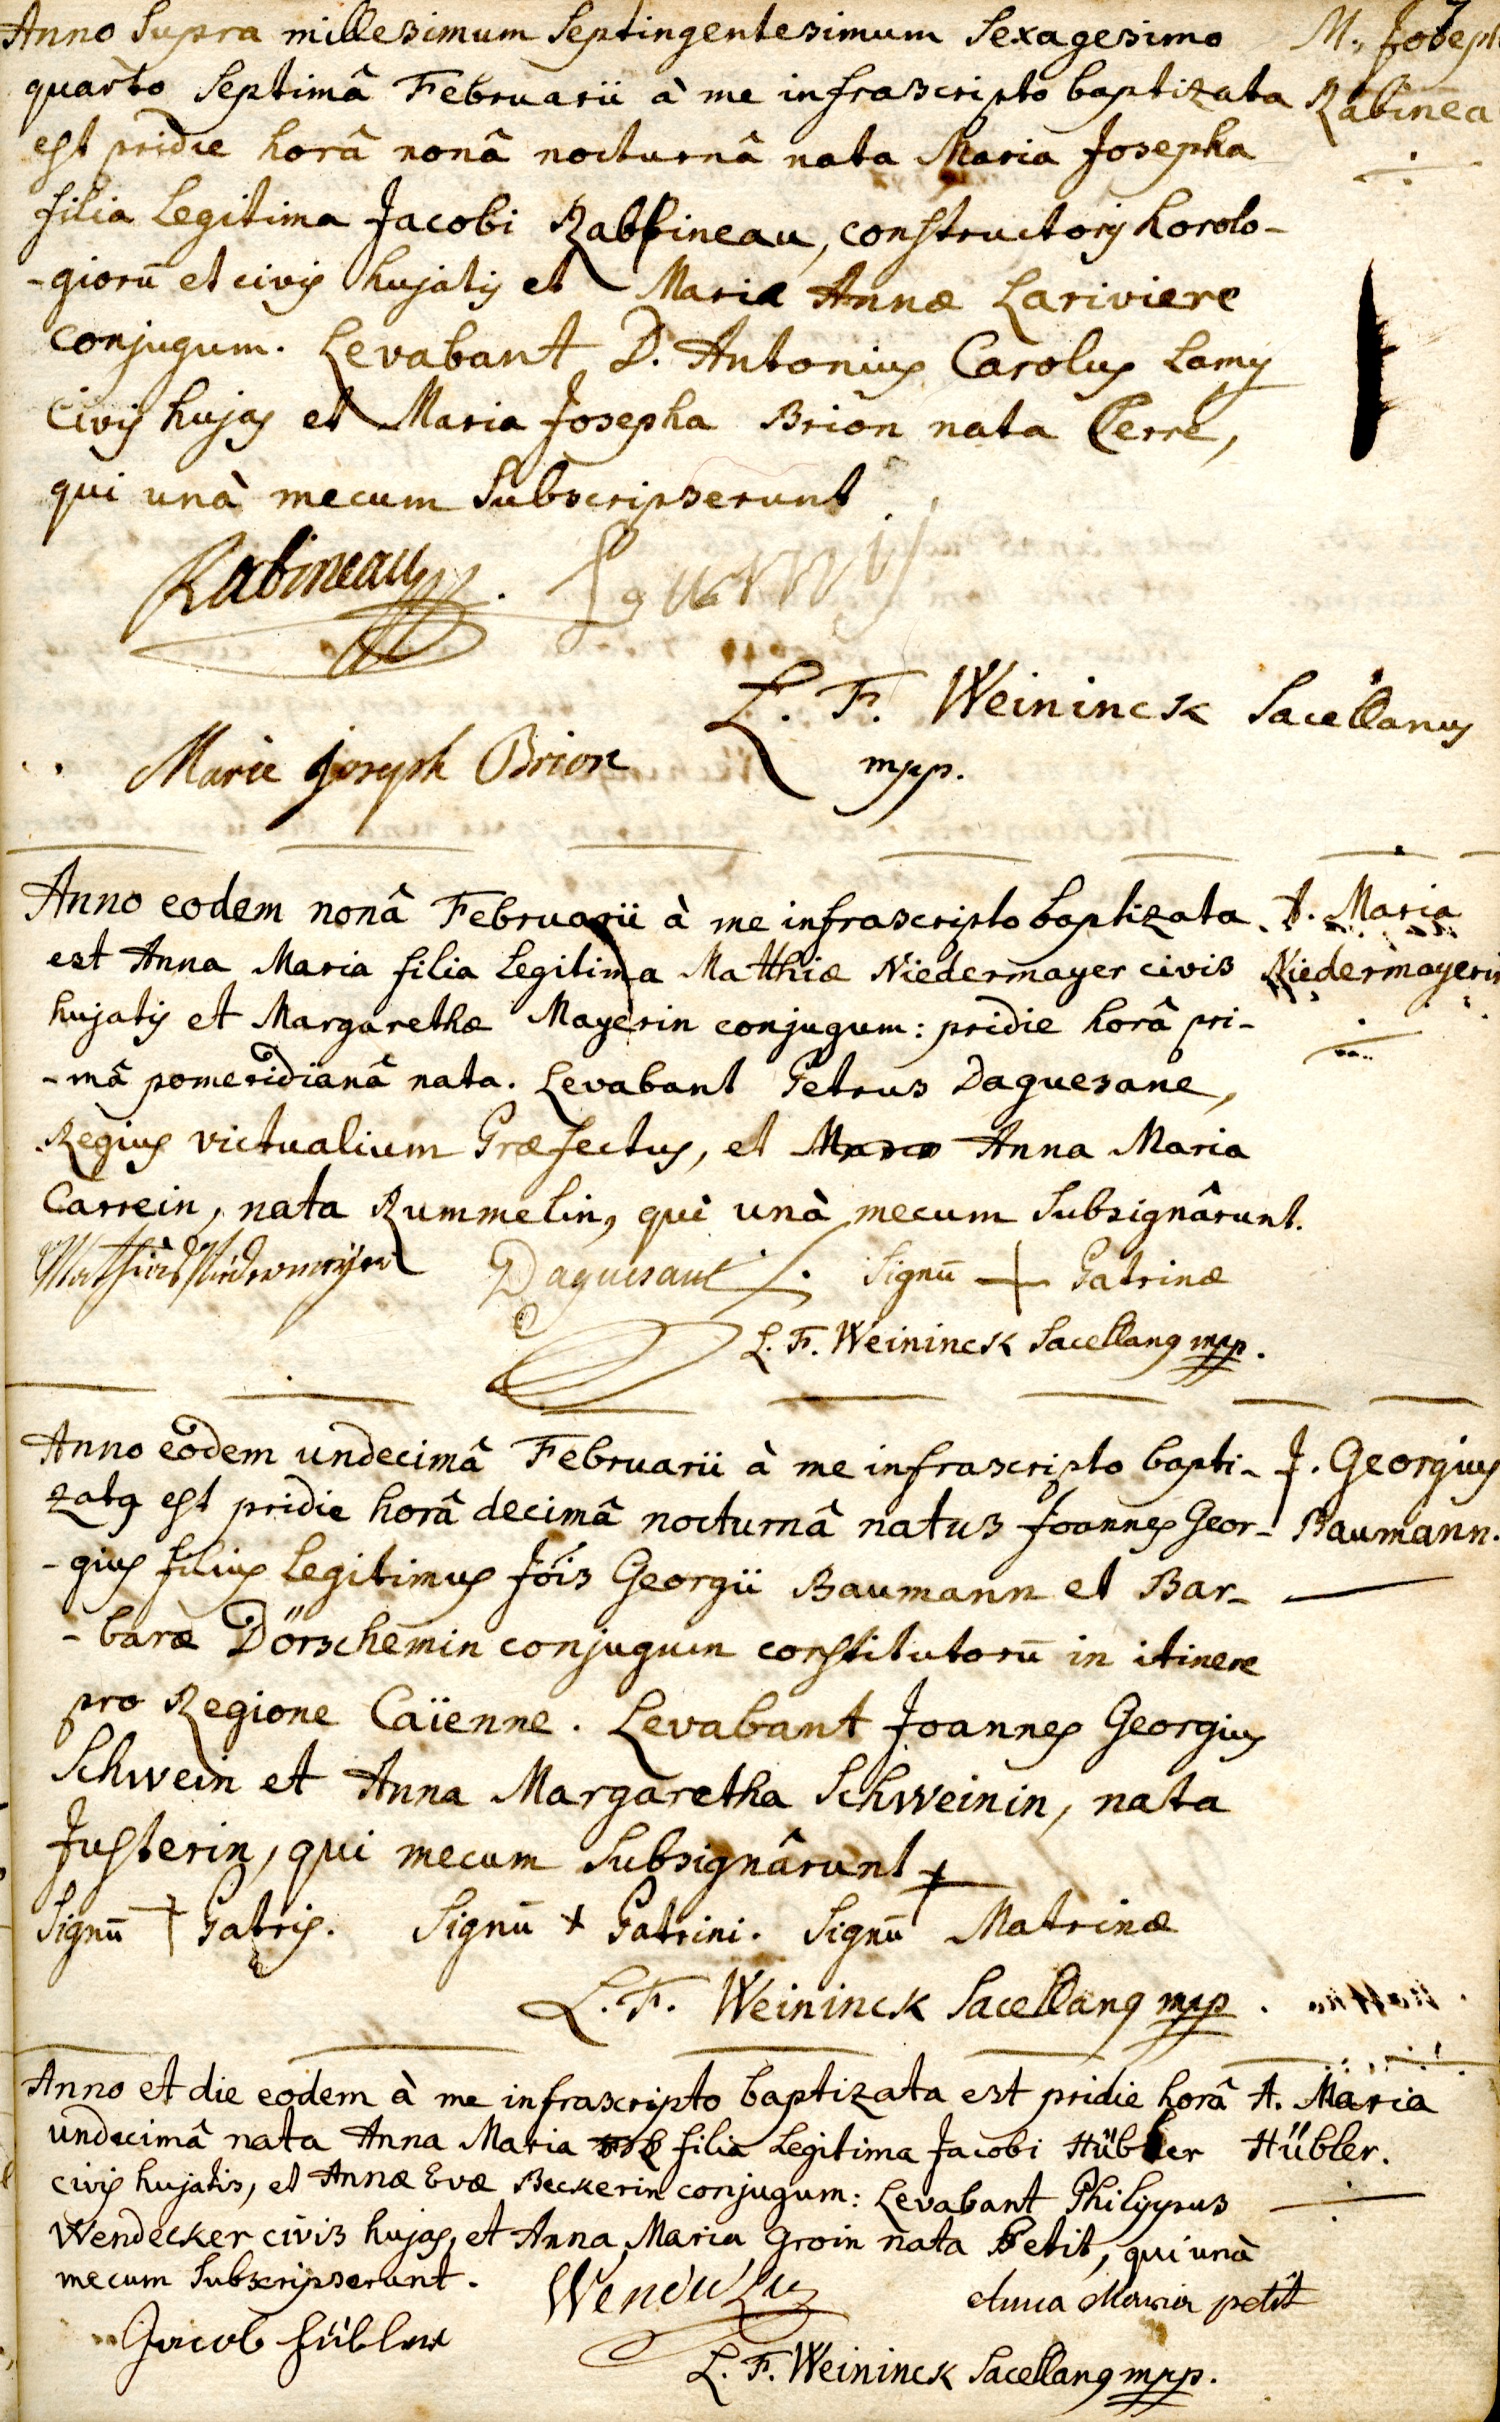 Anno Supra millesimum Septingentesimum Sexagesimo
quarto Septimâ Februarii à me infrascripto baptizata
est pridie horâ nonâ nocturnâ nata Maria Josepha
filia Legitima Jacobi Rabbineau, constructoris horolo-
-giorū et civis hujatis et Mariæ Annæ Lariviere
conjugum. Levabant D. Antonius Carolus Lamy
Civis hujas et Maria Josepha Brion nata Cerre,
qui unà mecum Subscripserunt
M. Joseph
Rabinea
Rabineau
L. F. Weininck Sacellanus
mpp.
Marie joseph Brion
Anno eodem nonâ Februarii à me infrascripto baptizata
est Anna Maria filia Legitima Matthiæ Niedermayer civis
hujatis et Margarethæ Mayerin conjugum: pridie horâ pri-
-mâ pomeridianâ nata. Levabant Petrus Daguesane,
Regius victualium Præfectus, et Anna Maria
Carrein, nata Rummelin, qui unà mecum Subsignârunt.
A. Maria
Niedermayerin
Mathias Niedermeyer Daguesane Signū + Patrinæ
L. F. Weininck Sacellanus mpp.
Anno eodem undecimâ Februarii à me infrascripto bapti-
zatus est pridie horâ decimâ nocturnâ natus Joannes Geor-
-gius filius Legitimus Jois Georgii Baumann et Bar-
-baræ Dörschemin conjugum constitutorū in itinere
pro Regione Caïenne. Levabant Joannes Georgius
Schwein et Anna Margaretha Schweinin, nata
Justerin, qui mecum Subsignârunt
J. Georgius
Baumann.
Signū + Patris. Signū + Patrini. Signū + Matrinæ
L. F. Weininck Sacellanus mpp.
Anno et die eodem à me infrascripto baptizata est pridie horâ
undecimâ nata Anna Maria filia Legitima Jacobi Hübler
civis hujatis, et Annæ Evæ Beckerin conjugum: Levabant Philippus
Wendecker civis hujas, et Anna Maria Groin nata Petit, qui unà
mecum Subscripserunt.
A. Maria
Hübler.
Anna Maria petit
Jacob hübler
L. F. Weininck Sacellanus mpp.